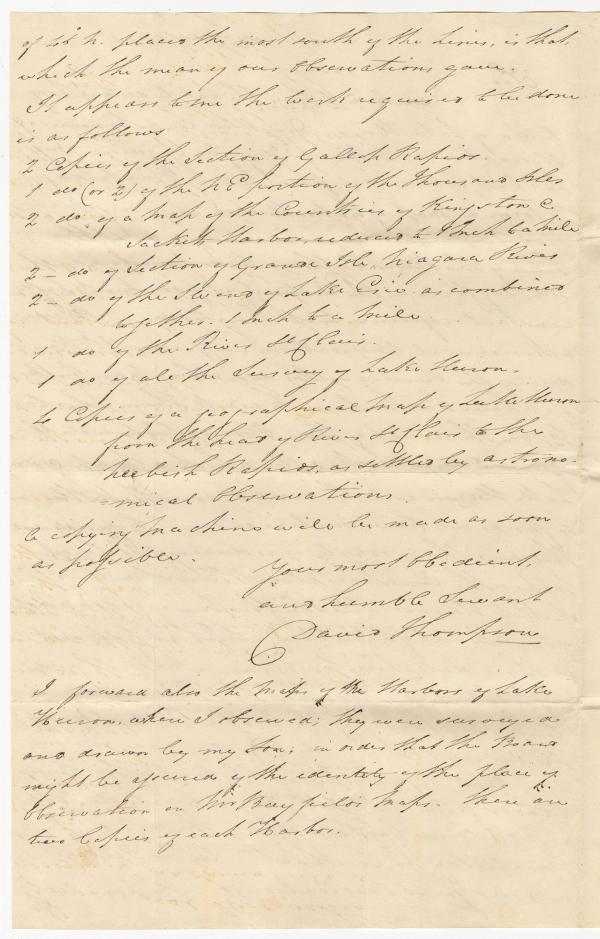 of Lt N. placed the most south of the Lines, is that,
which the mean of our Observations gave.
It appears to me the Work required to be done
is as follows
2 Copies of the Section of Gallop Rapids.
1 do (or 2) of the NE portion of the Thousand Isles
2 do of a Map of the Countries of Kingston &
Sacketts Harbor, reduced to 1 Inch to a Mile
2 - do of Section of Grande Isle, Niagara River
2 - do of the end of Lake Erie as combined
together. 1 Inch to a Mile.
1 do of the River St Clair.
1 do of all the Survey of Lake Huron.
4 Copies of a geographical Map of Lake Huron
from the head of River St Clair to the
Neebish Rapids, as settled by astrono-
=mical Observations.
A copying Machine will be made as soon
as possible.
Your most Obedient,
and humble Servant
David Thompson
I forward also the Maps of the Harbors of Lake
Huron, where I observed; they were surveyed
and drawn by my Son; in order that the Board
might be assured of the identity of the place of
Observation on Mr Bayfield's Maps. There are
two Copies of each Harbor.